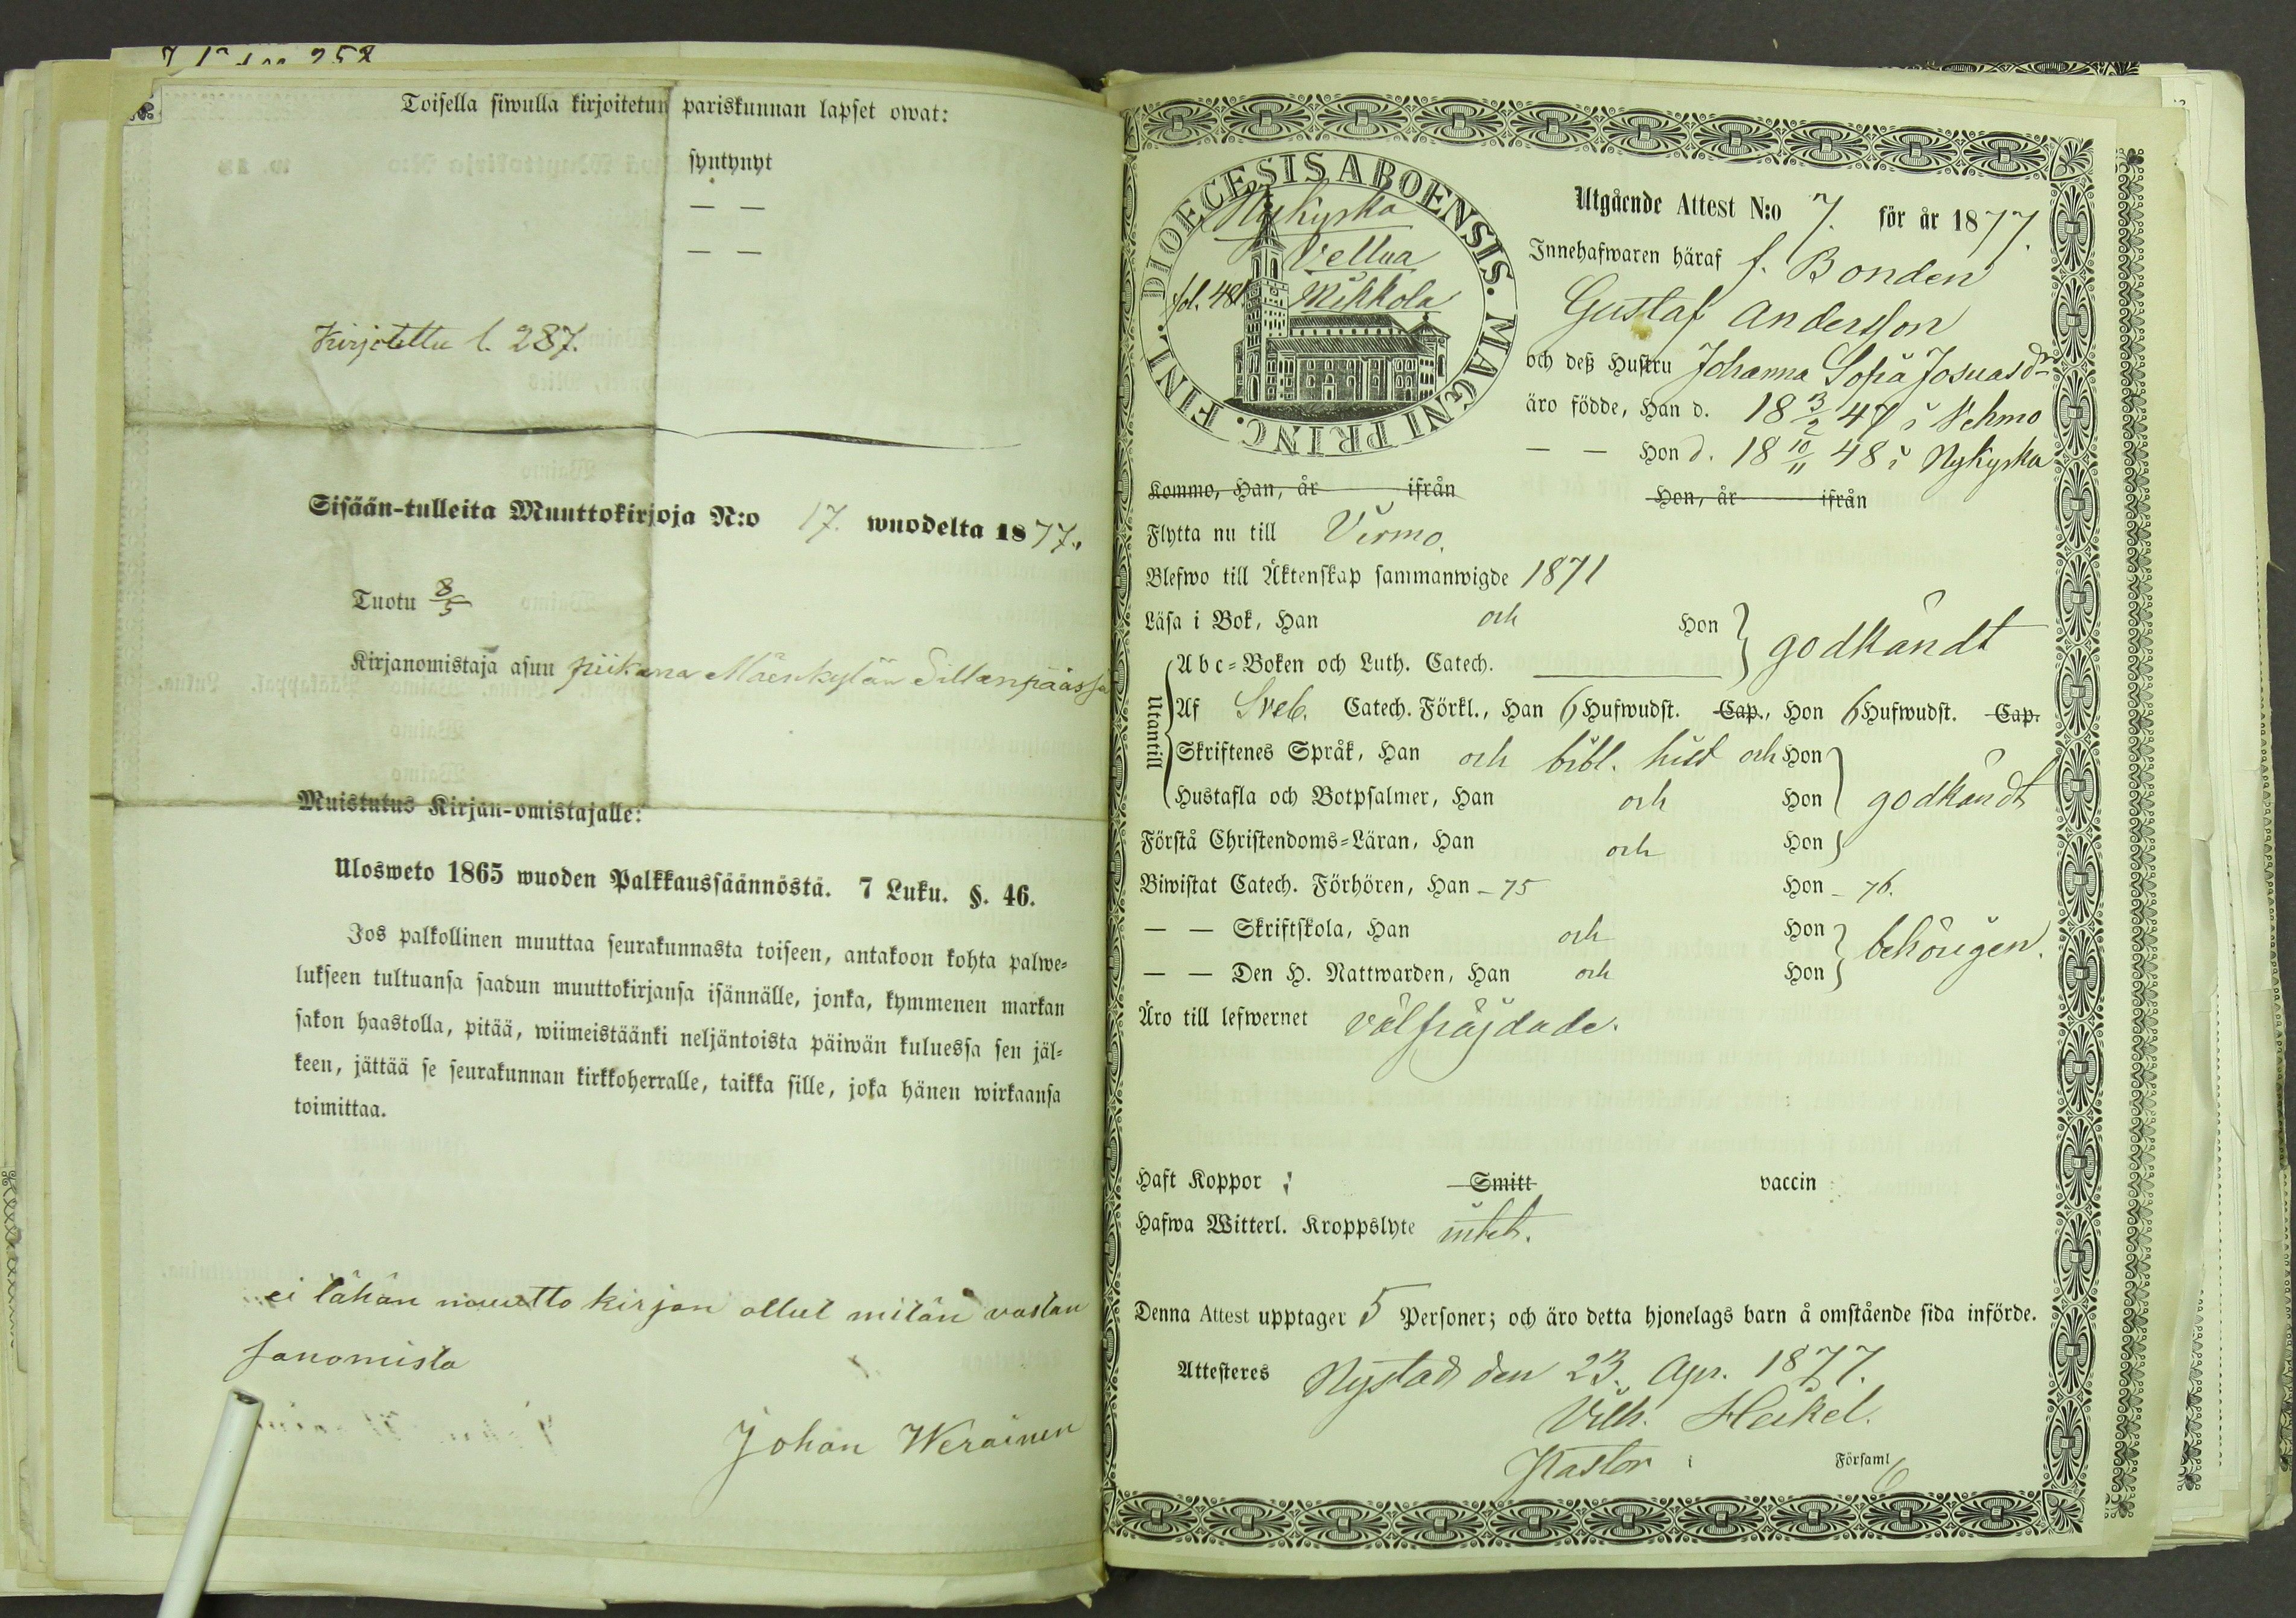 Toisella siwulla kirjoitetun pariskunnan lapset owat:
syntynyt
— —
— —
Kirjotettu l. 287.
Sisään-tulleita Muuttokirjoja N:o 17. wuodelta 1877.
Tuotu 8/5
Kirjanomistaja asuu piikana Mäenkylän Sillanpäässä
Muistutus Kirjan-omistajalle:
Ulosweto 1865 wuoden Palkkaussäännöstä. 7 Luku. §. 46.
Jos palkollinen muuttaa seurakunnasta toiseen, antakoon kohta palwe-
lukseen tultuansa saadun muuttokirjansa isännälle, jonka, kymmenen markan
sakon haastolla, pitää, wiimeistäänki neljäntoista päiwän kuluessa sen jäl-
keen, jättää se seurakunnan kirkkoherralle, taikka sille, joka hänen wirkaansa
toimittaa.
ei tähän muutto kirjan ollut mitän vastan
sanomista
Johan Werainen
DIOECESIS ABOENSIS. MAGNI PRINC. FINL.
Nykyrka
Vellua
fol. 481. Mikkola
Utgående Attest N:o 7. för år 1877.
Innehafwaren häraf f. Bonden
Gustaf Andersson
och deß Hustru Johanna Sofia Josuasdr
äro födde, Han d. 18 13/2 47 i Vehmo
— — Hon d. 18 10/11 48 i Nykyrka
Kommo, Han, år ifrån Hon, år ifrån
Flytta nu till Virmo.
Blefwo till Äktenskap sammanwigde 1871
Läsa i Bok, Han och Hon godkändt
Abc-Boken och Luth. Catech.
Utantill
Af Sveb. Catech. Förkl., Han 6 Hufwudst. Cap., Hon 6 Hufwudst. Cap.
Skriftenes Språk, Han och bibl. hist och Hon
Hustafla och Botpsalmer, Han och Hon godkändt
Förstå Christendoms-Läran, Han och Hon
Biwistat Catech. Förhören, Han - 75 Hon - 76.
— — Skriftskola, Han och Hon behörigen.
— — Den H. Nattwarden, Han och Hon
Äro till lefwernet välfräjdade.
Haft Koppor Smitt vaccin
Hafwa Witterl. Kroppslyte intet.
Denna Attest upptager 5 Personer; och äro detta hjonelags barn å omstående sida införde.
Attesteres Nystad den 23. Apr. 1877.
Vilh. Heikel.
Pastor i Församl